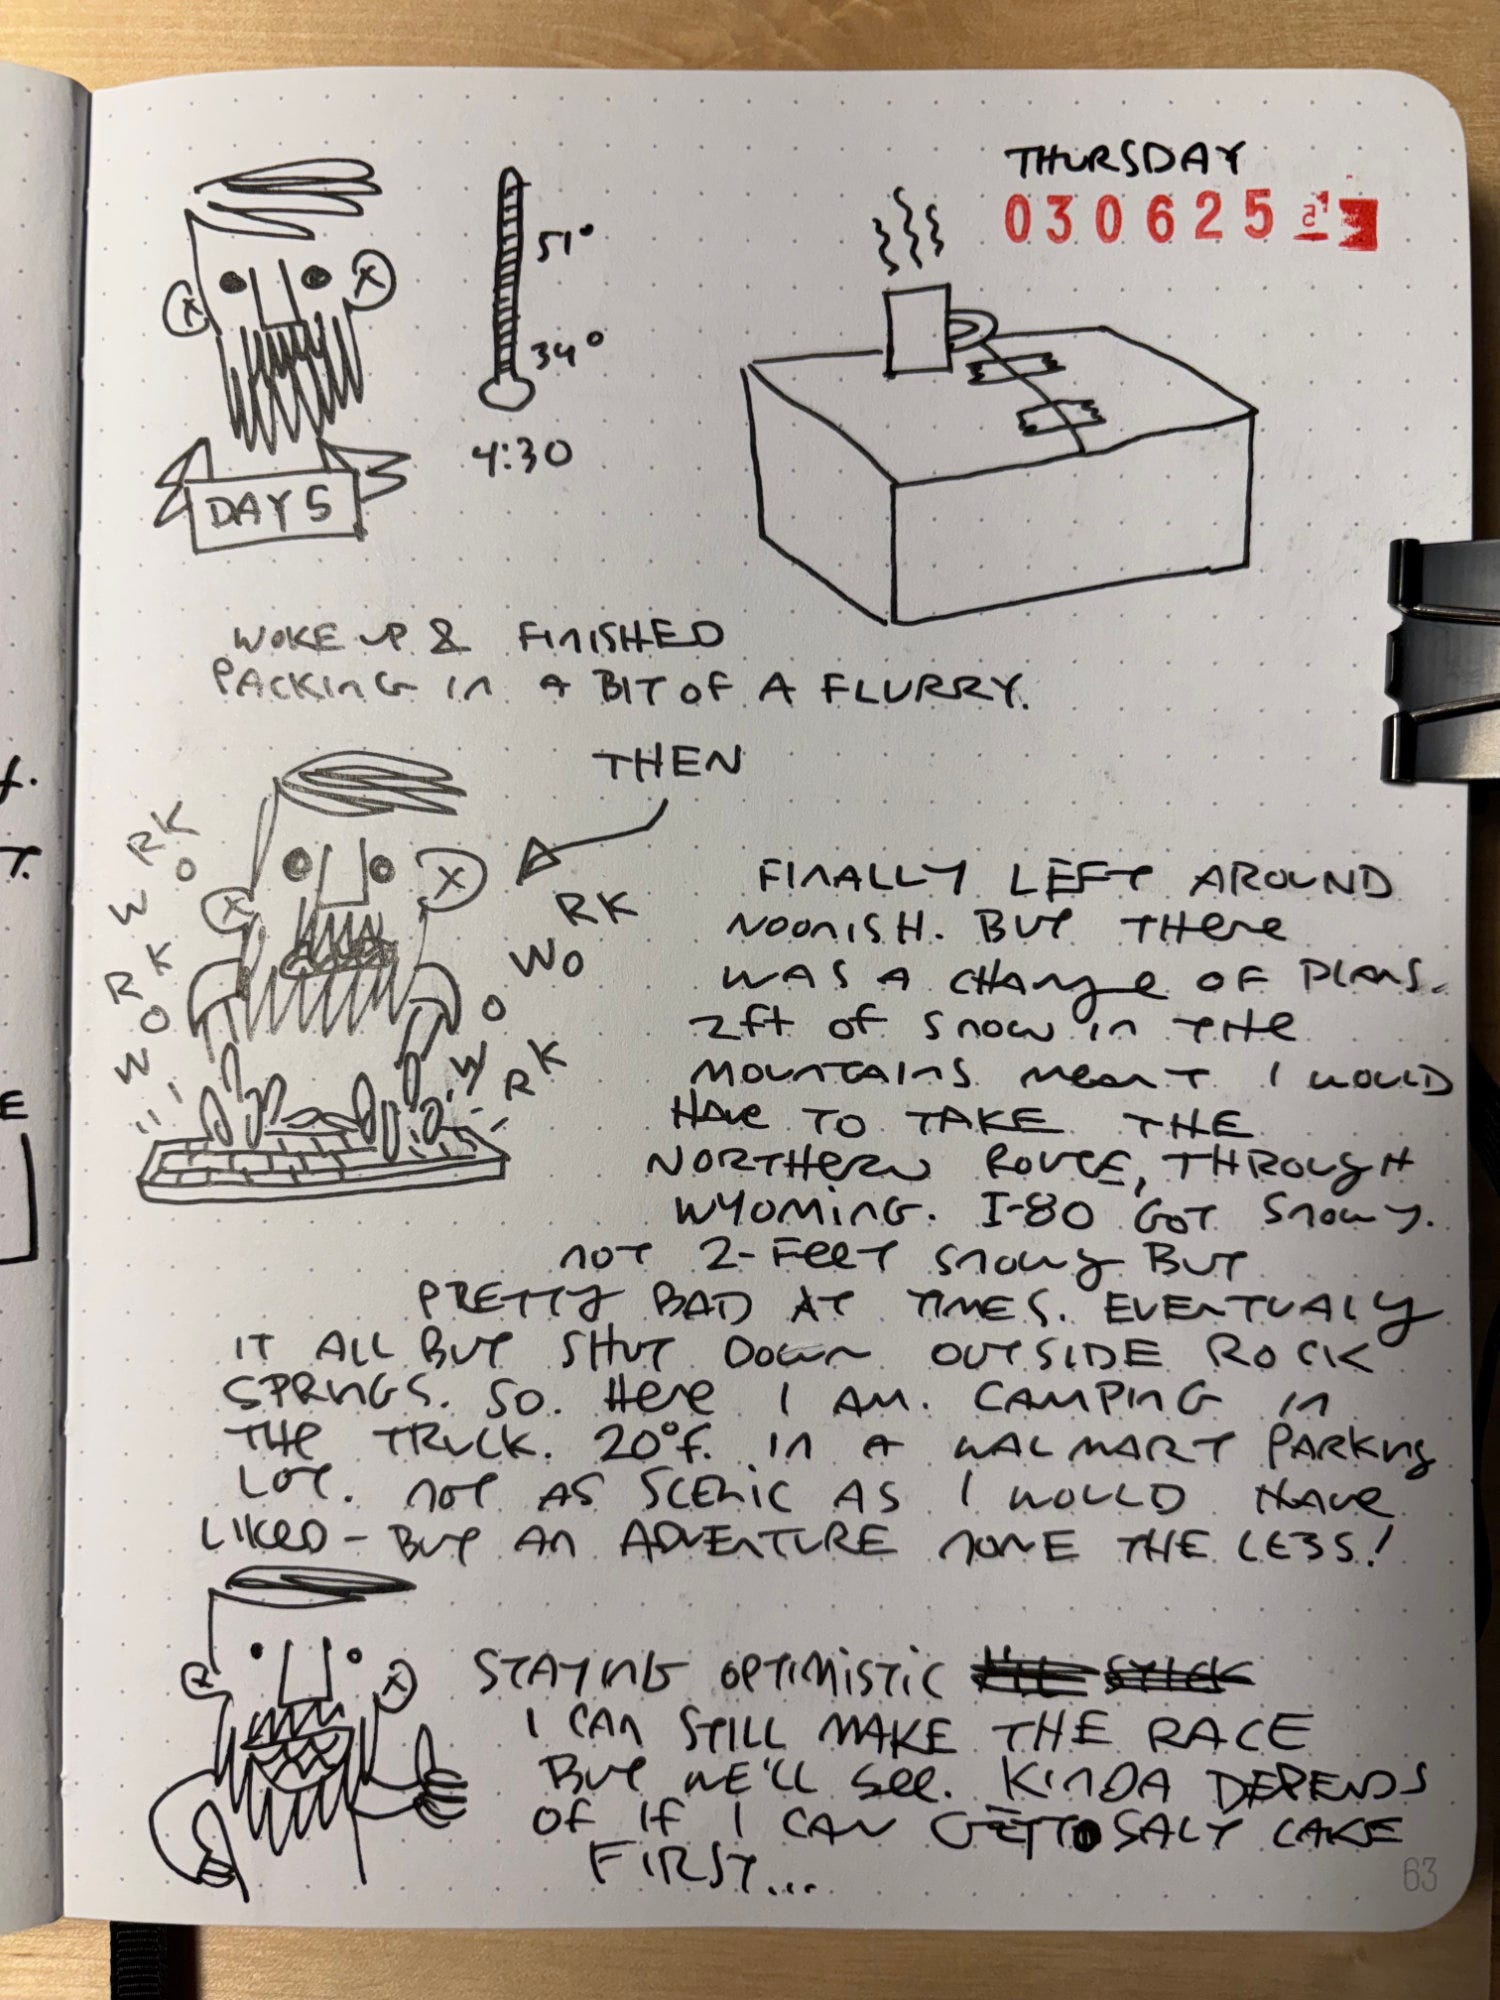 THURSDAY
030625
51°
34°
4:30
DAY 5
WOKE UP & FINISHED
PACKING IN A BIT OF A FLURRY.
THEN
WORK
WORK
WORK
WORK
FINALLY LEFT AROUND
NOONISH. BUT THERE
WAS A CHANGE OF PLANS.
2ft OF SNOW IN THE
MOUNTAINS MEANT I WOULD
HAVE TO TAKE THE
NORTHERN ROUTE, THROUGH
WYOMING. I-80 GOT SNOWY.
NOT 2-FEET SNOWY BUT
PRETTY BAD AT TIMES. EVENTUALY
IT ALL BUT SHUT DOWN OUTSIDE ROCK
SPRINGS. SO. HERE I AM. CAMPING IN
THE TRUCK. 20°F. IN A WALMART PARKING
LOT. NOT AS SCENIC AS I WOULD HAVE
LIKED - BUT AN ADVENTURE NONE THE LESS!
STAYING OPTIMISTIC
I CAN STILL MAKE THE RACE
BUT WE'LL SEE. KINDA DEPENDS
OF IF I CAN GET TO SALT LAKE
FIRST...
63